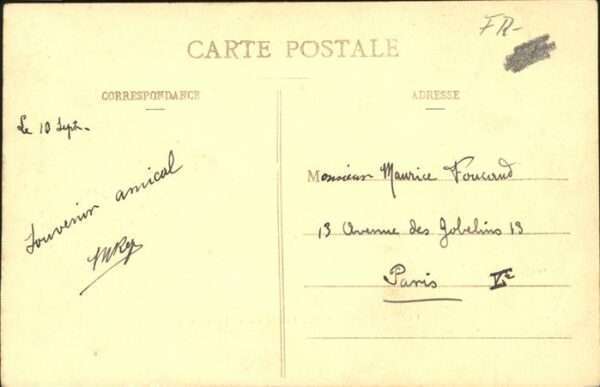 FR-
CARTE POSTALE
CORRESPONDANCE
ADRESSE
Le 10 Sept.
Souvenir amical
MRey
Monsieur Maurice Foucaud
13 Avenue des Gobelins 13
Paris Ve